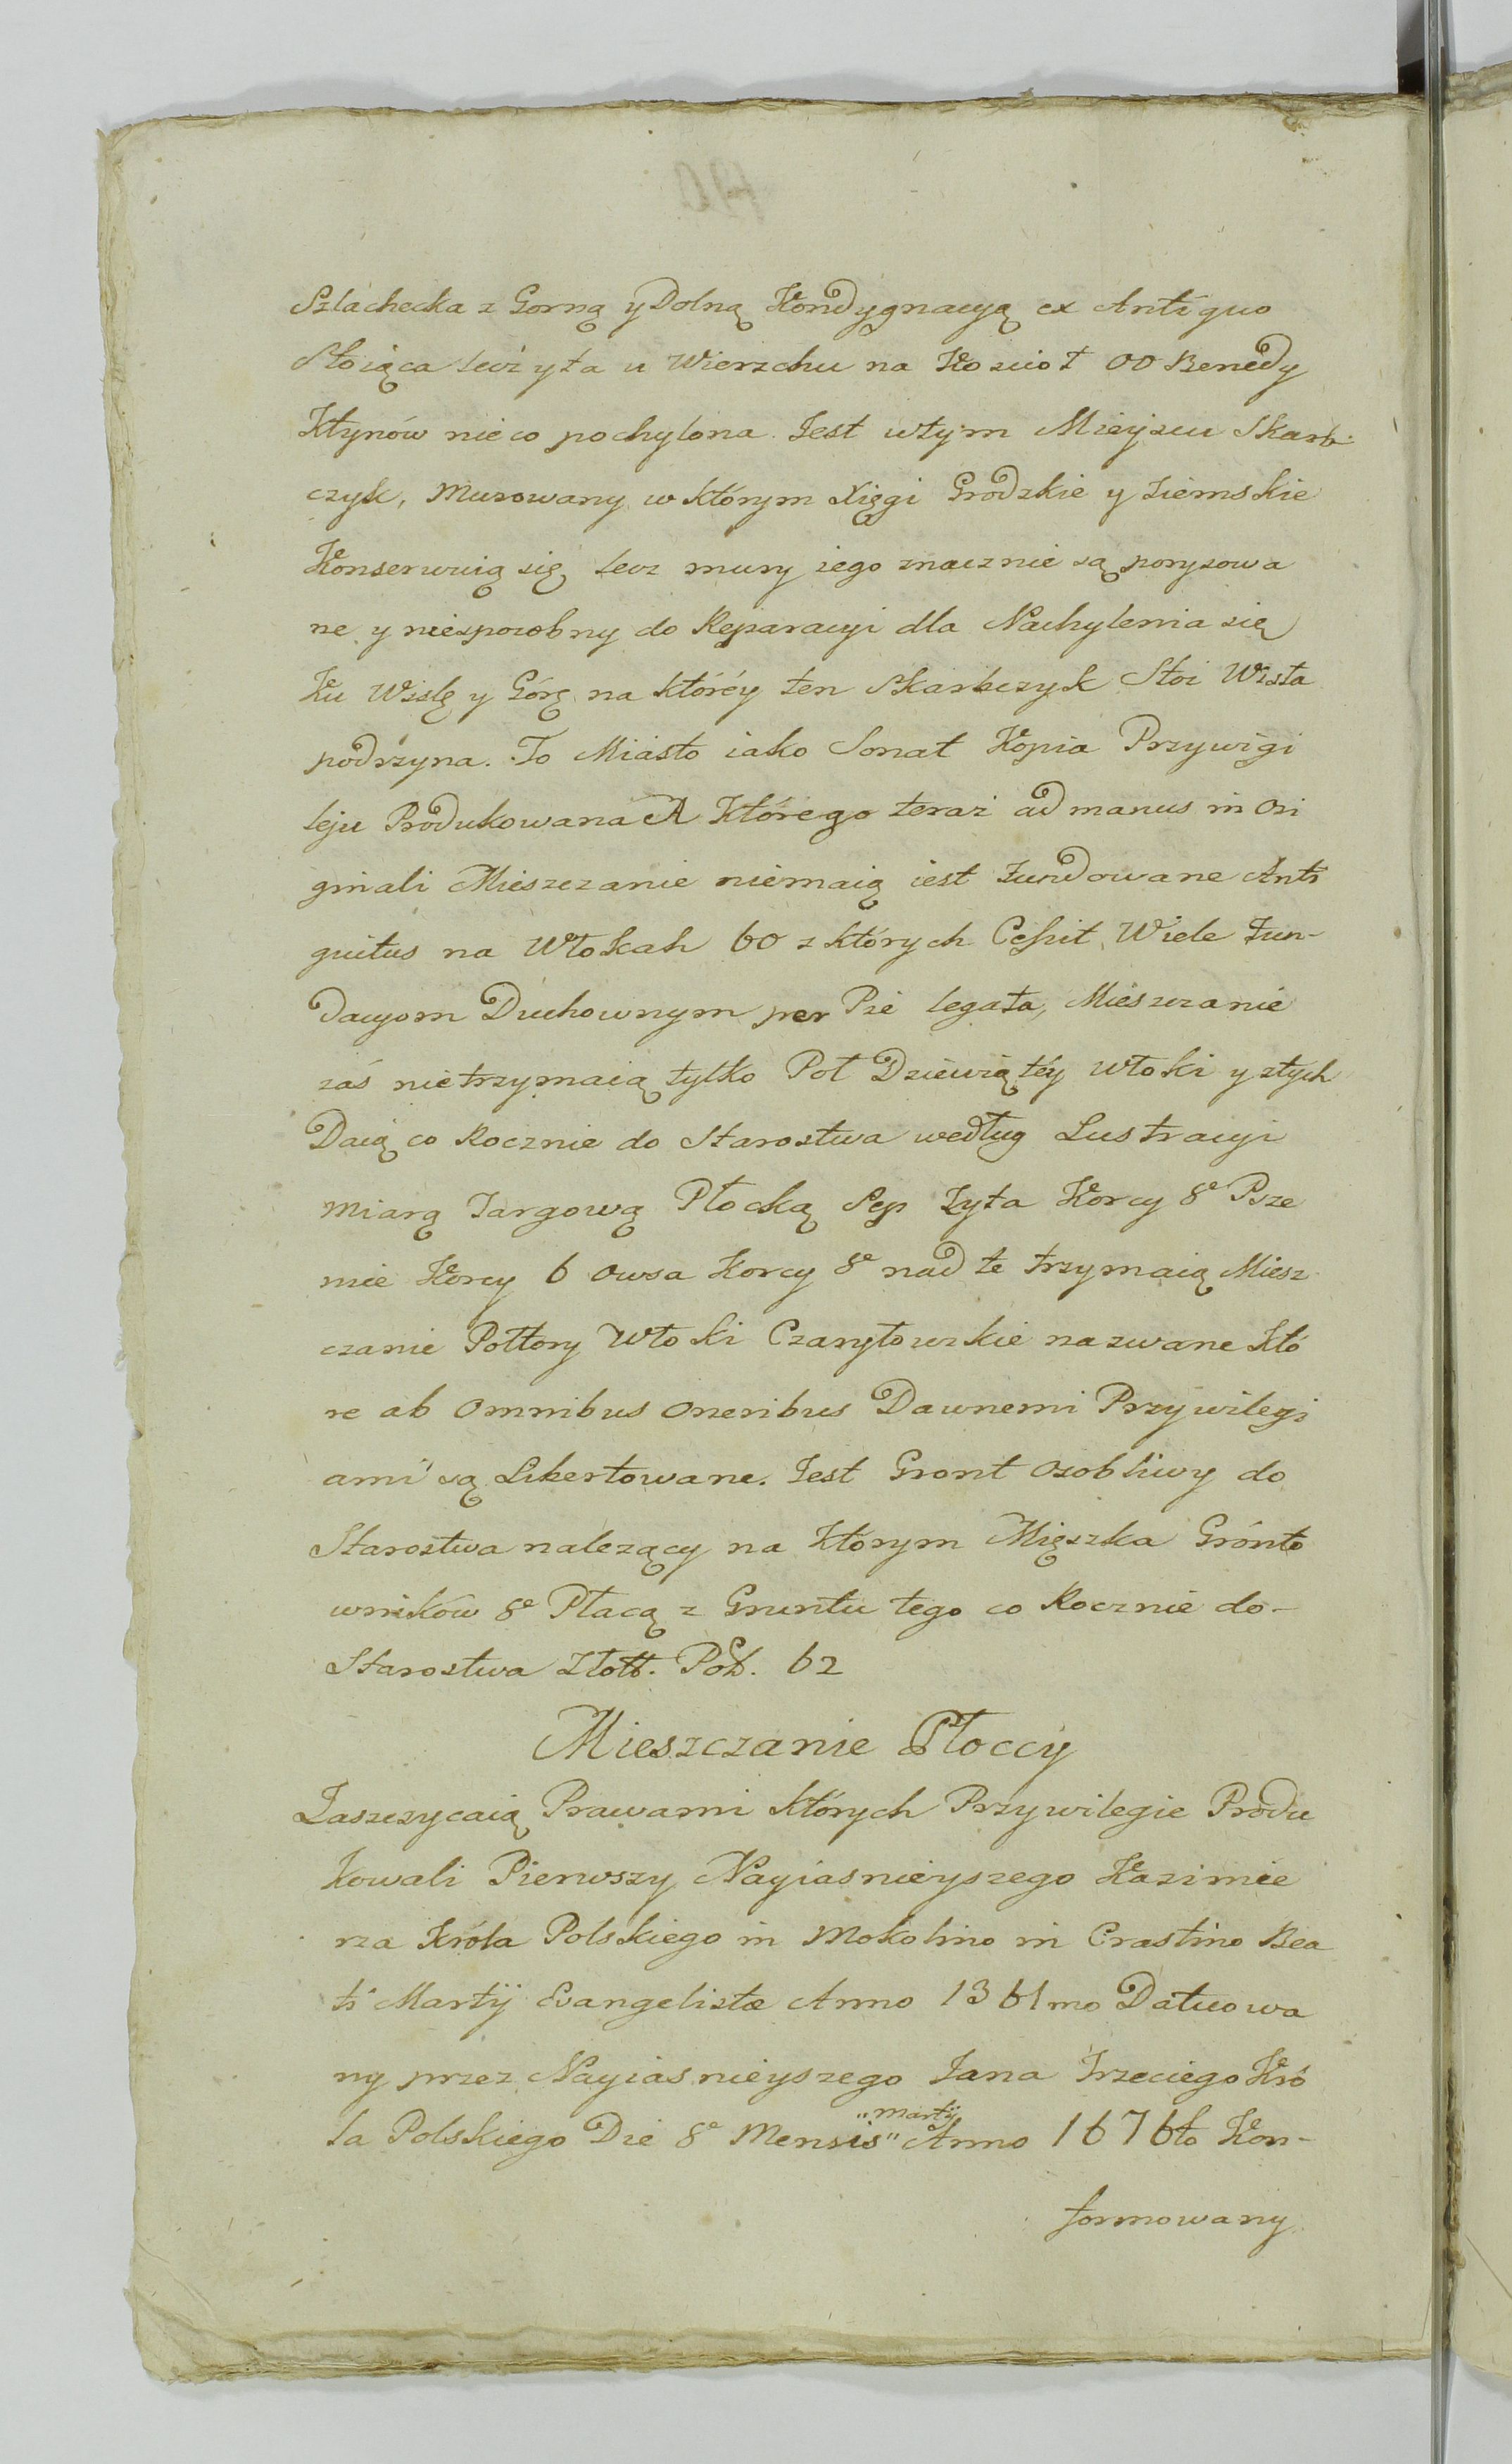 Szlachecka z Gorną y Dolną Kondygnacyą ex Antiquo
Stoiąca lecz yta u Wierzchu na Koscioł OO Benedy
Ktynów nieco pochylona. Jest wtym Mieyscu Skarb-
czyk, Murowany w którym Xięgi Grodzkie y Ziemskie
Konserwuią się lecz mury iego znacznie są porysowa
ne y niesposobny do Reparacyi dla Nachylenia się
Ku Wisle y Górę na któréy ten Skarbczyk Stoi Wisła
podrzyna. To Miasto iako Sonat Kopia Przywigi
leju Produkowana A Którego teraz ad manus in Ori
ginali Mieszczanie niemaią iest Fundowane Anti
quitus na Włokah 60 z których Cessit Wiele Fun-
dacyom Duchownym per Pie legata, Mieszczanie
zaś nietrzymaią tylko Poł Dziewiątéy włoki y ztych
Daią co Rocznie do Starostwa według Lustracyi
Miarą Targową Płocką Sep Zyta Korcy 8° Psze
nie Korcy 6 Owsa Korcy 8° nad te trzymaią Miesz
czanie Połtory Włoki Czaryłowskie nazwane Któ
re ab Omnibus Oneribus Dawnemi Przywilegi
ami są Libertowane. Jest Gront Osobliwy do
Starostwa nalezący na Którym Mięszka Grónto
wników 8° Płacą z Gruntu tego co Rocznie do-
Starostwa Złott. Pol. 62
Mieszczanie Płoccy
Zaszczycaią Prawami których Przywilegie Produ
Kowali Pierwszy Nayiasnieyszego Kazimie
rza Króla Polskiego in Mokolino in Crastino Bea
ti Martij Evangelistæ Anno 1361mo Datuowa
ny przez Nayiasnieyszego Jana Trzeciego Kró
la Polskiego Die 8° Mensis " "Martij Anno 1676to Kon-
formowany